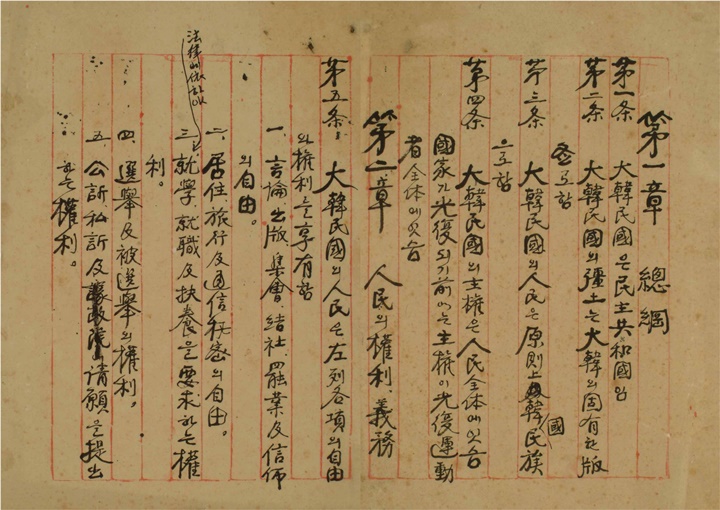 第一章 總綱
第一条 大韓民國은民主共和國임
第二条 大韓民國의疆土는大韓의固有한版
図로함
第三条 大韓民國의人民은原則上韓國民族
으로함
第四条 大韓民國의主權은人民全体에잇음
國家가光復되기前에는主權이光復運動
者全体에잇음
第二章 人民의權利、義務
第五条 大韓民國의人民은左列各項의自由
와權利를享有함
一、言論、出版、集會、結社、罷業及信仰
의自由。
二、居住、旅行及通信秘密의自由。
法律에依하야
三、就學、就職及扶養을要求하는權
利。
四、選舉及被選舉의權利。
五、公訴私訴及議政院에请願을提出
하는權利。